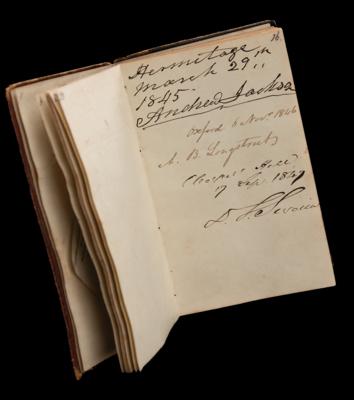 26
Hermitage
March 29th
1845.
Andrew Jackson
Oxford 6 Novr 1846
A. B. Longstreet
Chapel Hill
17 Sep. 1847
D. L. Swain